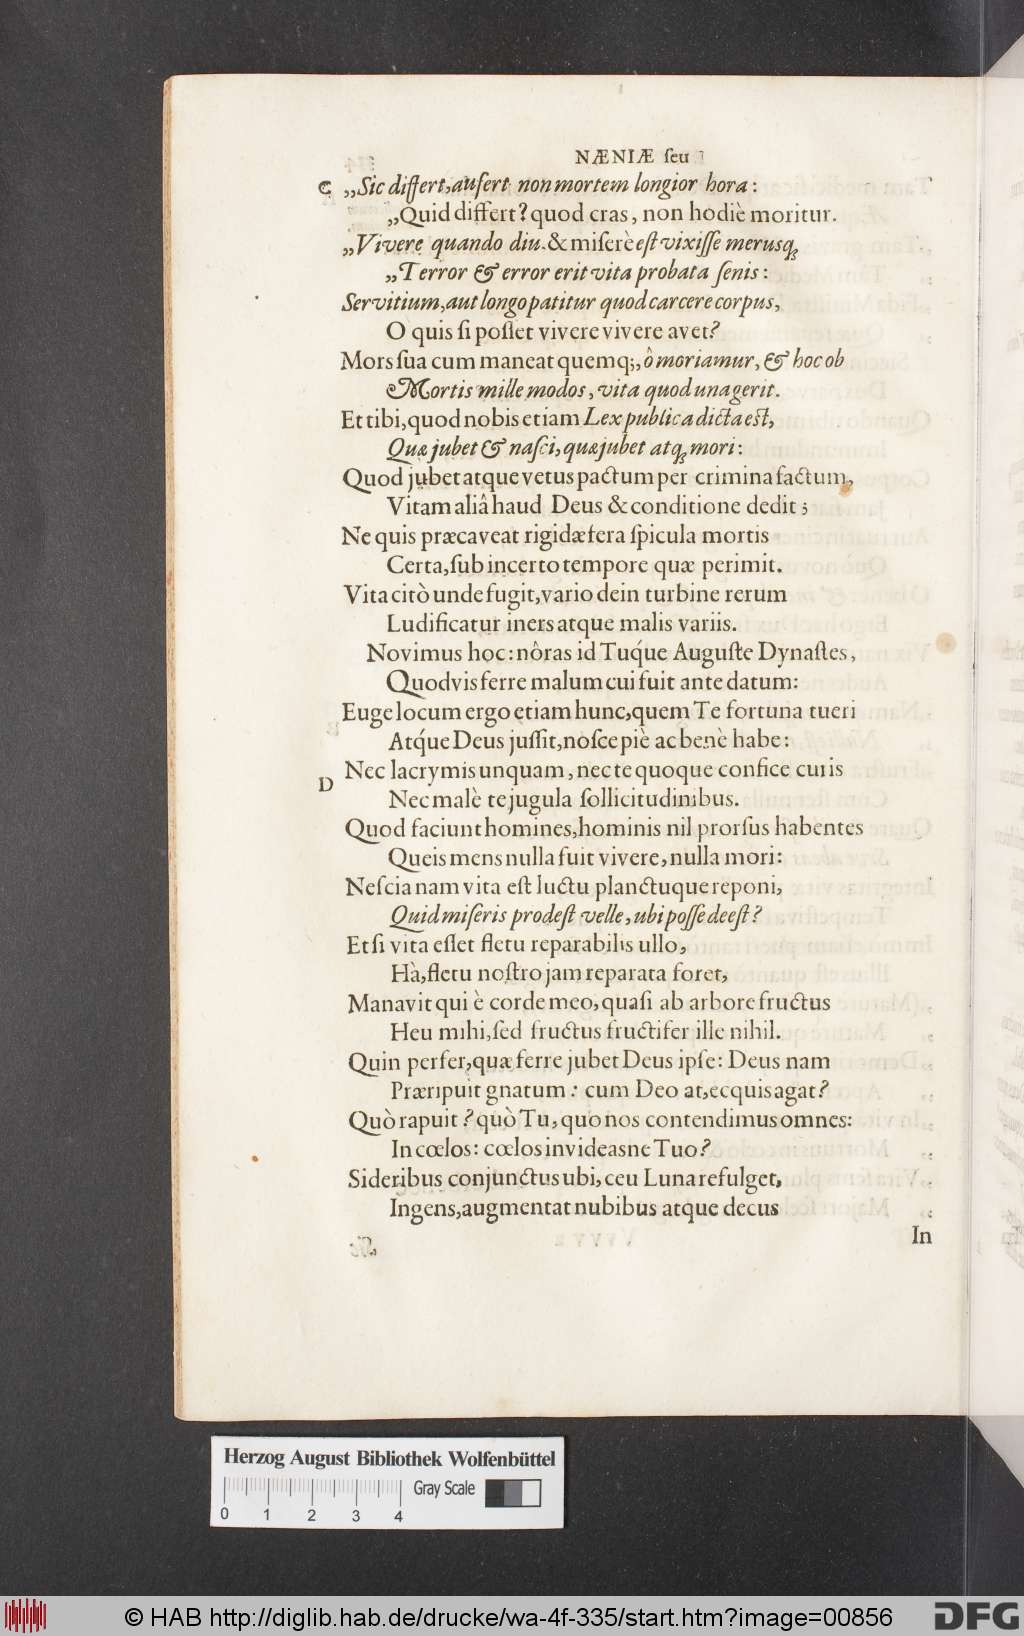 NÆNIÆ ſeu
C „Sic differt, aufert non mortem longior hora:
„Quid differt? quod cras, non hodiè moritur.
„Vivere quando diu & miſerè eſt vixiſſe merusq;
„Terror & error erit vita probata ſenis:
Servitium, aut longo patitur quod carcere corpus,
O quis ſi poſſet vivere vivere avet?
Mors ſua cum maneat quemq;, ô moriamur, & hoc ob
Mortis mille modos, vita quod una gerit.
Et tibi, quod nobis etiam Lex publica dicta eſt,
Quæ jubet & naſci, quæ jubet atq; mori:
Quod jubet atque vetus pactum per crimina factum,
Vitam aliâ haud Deus & conditione dedit;
Ne quis præcaveat rigidæ fera ſpicula mortis
Certa, ſub incerto tempore quæ perimit.
Vita citò unde fugit, vario dein turbine rerum
Ludificatur iners atque malis variis.
Novimus hoc: nôras id Tuq́ue Auguſte Dynaſtes,
Quodvis ferre malum cui fuit ante datum:
Euge locum ergo etiam hunc, quem Te fortuna tueri
Atq́ue Deus juſſit, noſce piè ac benè habe:
D Nec lacrymis unquam, nec te quoque confice curis
Nec malè te jugula ſollicitudinibus.
Quod faciunt homines, hominis nil prorſus habentes
Queis mens nulla fuit vivere, nulla mori:
Neſcia nam vita eſt luctu planctuque reponi,
Quid miſeris prodeſt velle, ubi poſſe deeſt?
Et ſi vita eſſet fletu reparabilis ullo,
Hà, fletu noſtro jam reparata foret,
Manavit qui è corde meo, quaſi ab arbore fructus
Heu mihi, ſed fructus fructifer ille nihil.
Quin perfer, quæ ferre jubet Deus ipſe: Deus nam
Præripuit gnatum: cum Deo at, ecquis agat?
Quò rapuit? quò Tu, quo nos contendimus omnes:
In cœlos: cœlos invideasne Tuo?
Sideribus conjunctus ubi, ceu Luna refulget,
Ingens, augmentat nubibus atque decus
In
Herzog August Bibliothek Wolfenbüttel
Gray Scale
0 1 2 3 4
© HAB http://diglib.hab.de/drucke/wa-4f-335/start.htm?image=00856
DFG